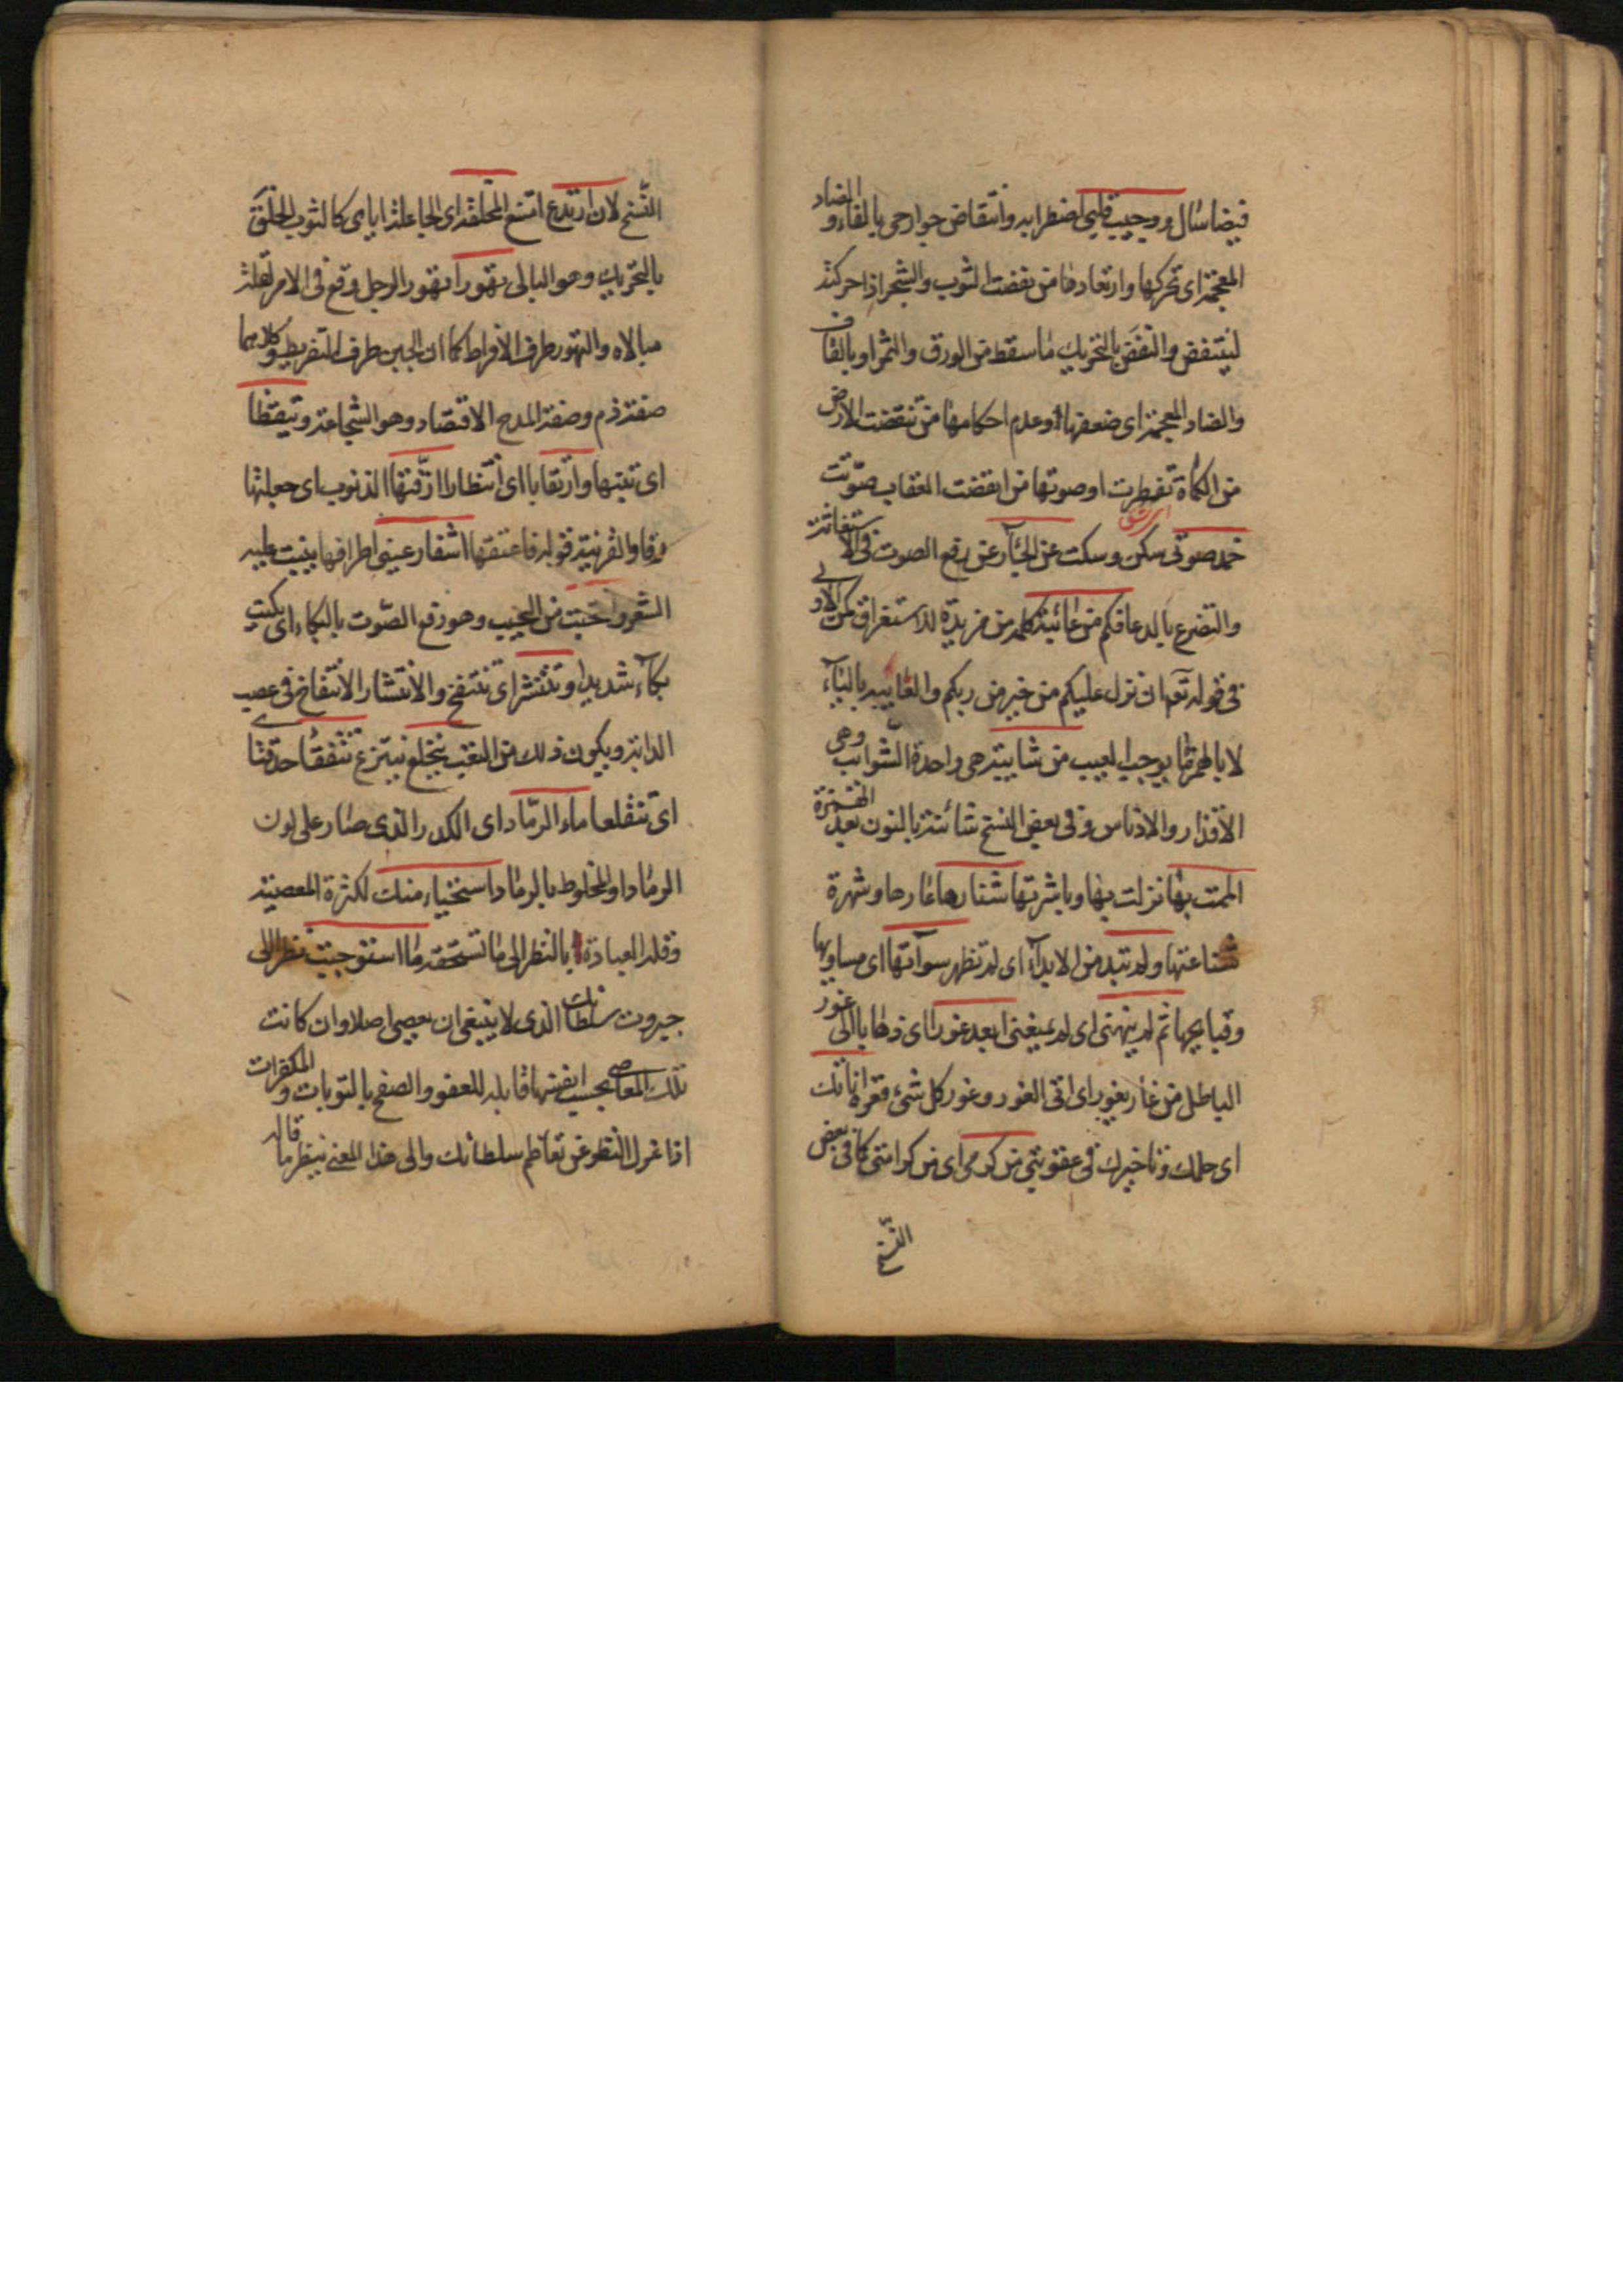 فيضا سال ووجيب قلبي اضطرابه وانتفاض جوارحى بالفاء والضاد
المعجمة اى تحركها وارتعادها من نفضت الثوب والشجر اذا حركته
لينتفض والنفض بالتحريك ما سقط من الورق والثمر او بالقاف
والضاد المعجمة اى ضعفها وعدم احكامها من تنقضت الارض
من الكماة تفطرت او صوتها من انقضت العقاب صوتت
خمد صوتى سكن وسكت عن الجئار عن رفع الصوت فى الاستغاثة
والتضرع بالدعا فكم من عائبة كلمة من مزيدة للاستغراق كمن الاولى
فى قوله تعه ان ينزل عليكم من خير من ربكم والعايبة بالياء
لا بالهمزة ما يوجب العيب من شايبة هى واحدة الشوايب وهى
الاقذار والادناس وفى بعض النسخ شائنة بالنون بعد الهمزة
الممت بها نزلت بها وباشرتها شنارها عارها وشهرة
شناعتها ولم تبد من الابداء اى لم تظهر سوآتها اى مساويها
وقبايحها ثم لم ينهنى اى لم يمنعنى ابعد غورا اى ذهابا الى غور
الباطل من غار يغور اى اتى الغور وغور كل شئ قعره اناتك
اى حلمك وتاخيرك فى عقوبتى من كرمى اى من كرامتى كما فى بعض
النسخ
النسخ لان ارتدع امتنع المخلقة اى الجاعلة اياى كالثوب الخلق
بالتحريك وهو البالى تهورا تهور الرجل وقع فى الامر بقلة
مبالاه والتهور طرف الافراط كما ان الجبن طرف التفريط وكلاهما
صفة ذم وصفة المدح الاقتصاد وهو الشجاعة وتيقظا
اى تنبها وارتقابا اى انتظارا ارقتها الذنوب اى جعلتها
رقا والقرنية قوله فاعتقها اشفار عينى اطرافها ينبت عليه
الشعر وانتحبت من النحيب وهو رفع الصوت بالبكاء اى بكيت
بكاء شديدا وتنتشر اى تنتفخ والانتشار الانتفاخ فى عصب
الدابة ويكون ذلك من التعب ينخلع ينتزع تتفقأ حدقتا
اى تنقلعا ماء الرماد اى الكدر الذى صار على لون
الرماد او المخلوط بالرماد استحياء منك لكثرة المعصية
وقلة العبادة بالنظر الى ما تستحقه ما استوجبت نظر الى
جبروت سلطانك الذى لا ينبغى ان يعصى اصلا وان كانت
تلك المعاصى بحسب انفسها قابلة للعفو والصفح بالتوبات والمكفرات
اذا عزل النظر عن تعاظم سلطانك والى هذا المعنى ينظر ما قاله